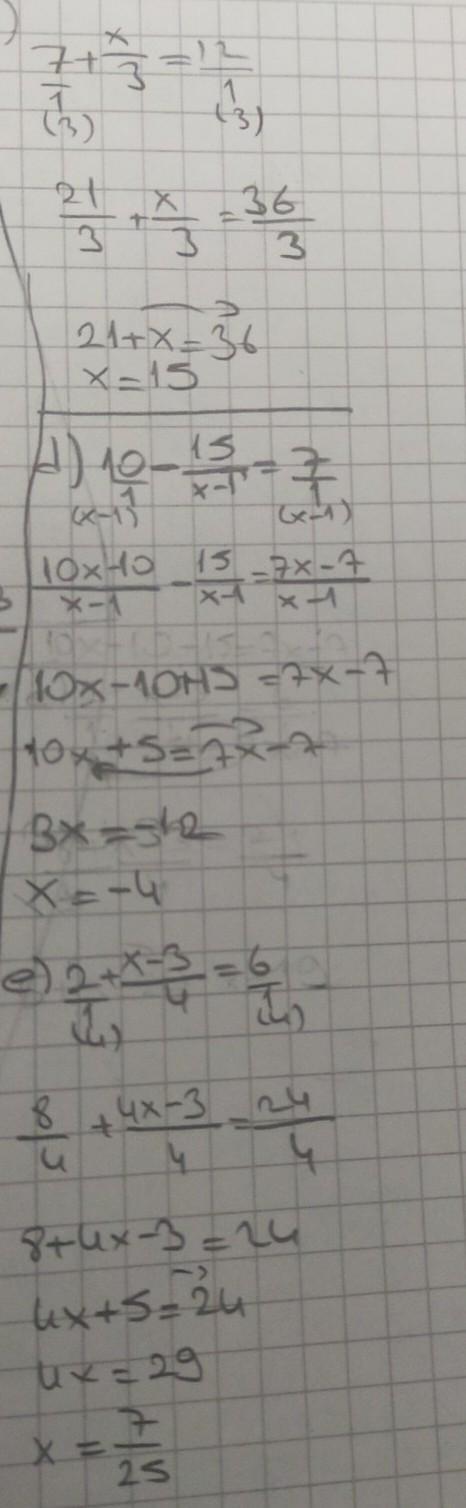 )
7/1 + x/3 = 12/1
(3) (3)
21/3 + x/3 = 36/3
21+x=36
x=15
d) 10/1 - 15/x-1 = 7/1
(x-1) (x-1)
10x-10/x-1 - 15/x-1 = 7x-7/x-1
10x-10+15=7x-7
10x+5=7x-7
3x=-12
x=-4
e) 2/1 + x-3/4 = 6/1
(4) (4)
8/4 + 4x-3/4 = 24/4
8+4x-3=24
4x+5=24
4x=29
x=7/25